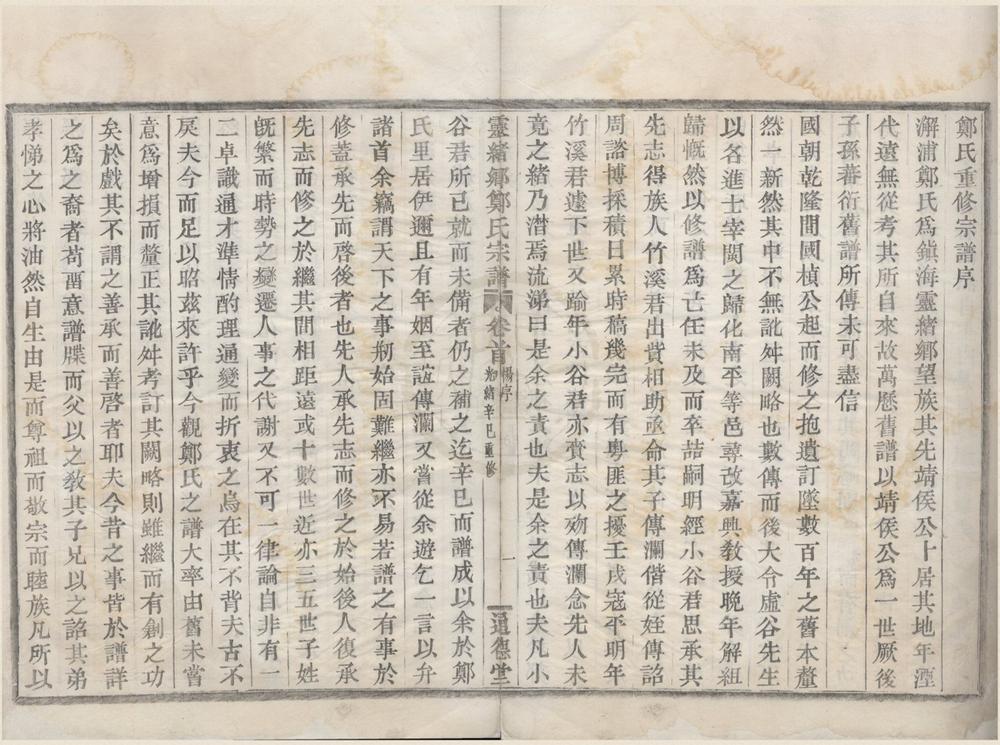 鄭氏重修宗譜序
澥浦鄭氏爲鎭海靈緒鄉望族其先靖侯公卜居其地年湮
代遠無從考其所自來故萬歷舊譜以靖侯公爲一世厥後
子孫蕃衍舊譜所傳未可盡信
國朝乾隆間國楨公起而修之抱遺訂墜數百年之舊本釐
然一新然其中不無訛舛闕略也數傳而後大令虛谷先生
以名進士宰閩之歸化南平等邑尋改嘉興敎授晚年解組
歸慨然以修譜爲己任未及而卒喆嗣明經小谷君思承其
先志得族人竹溪君出貲相助亟命其子傳瀾偕從姪傳詒
周諮博採積日累時稿幾完而有粵匪之擾壬戌寇平明年
竹溪君遽下世又踰年小谷君亦齎志以歿傳瀾念先人未
竟之緒乃潸焉流涕曰是余之責也夫是余之責也夫凡小
靈緒鄉鄭氏宗譜 卷首 楊序 光緒辛巳重修 一 通德堂
谷君所已就而未備者仍之補之迄辛巳而譜成以余於鄭
氏里居伊邇且有年姻至誼傳瀾又嘗從余遊乞一言以弁
諸首余竊謂天下之事剏始固難繼亦不易若譜之有事於
修蓋承先而啓後者也先人承先志而修之於始後人復承
先志而修之於繼其間相距遠或十數世近亦三五世子姓
旣繁而時勢之變遷人事之代謝又不可一律論自非有一
二卓識通才準情酌理通變而折衷之烏在其不背夫古不
戾夫今而足以昭茲來許乎今觀鄭氏之譜大率由舊未嘗
意爲增損而釐正其訛舛考訂其闕略則雖繼而有創之功
矣於戲其不謂之善承而善啓者耶夫今昔之事皆於譜詳
之爲之裔者苟畱意譜牒而父以之敎其子兄以之詔其弟
孝悌之心將油然自生由是而尊祖而敬宗而睦族凡所以